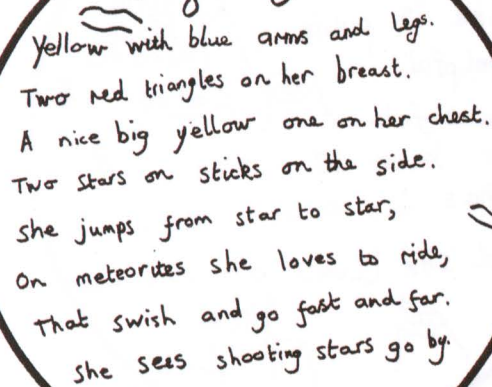 Yellow with blue arms and legs.
Two red triangles on her breast.
A nice big yellow one on her chest.
Two stars on sticks on the side.
She jumps from star to star,
On meteorites she loves to ride,
That swish and go fast and far.
She sees shooting stars go by.